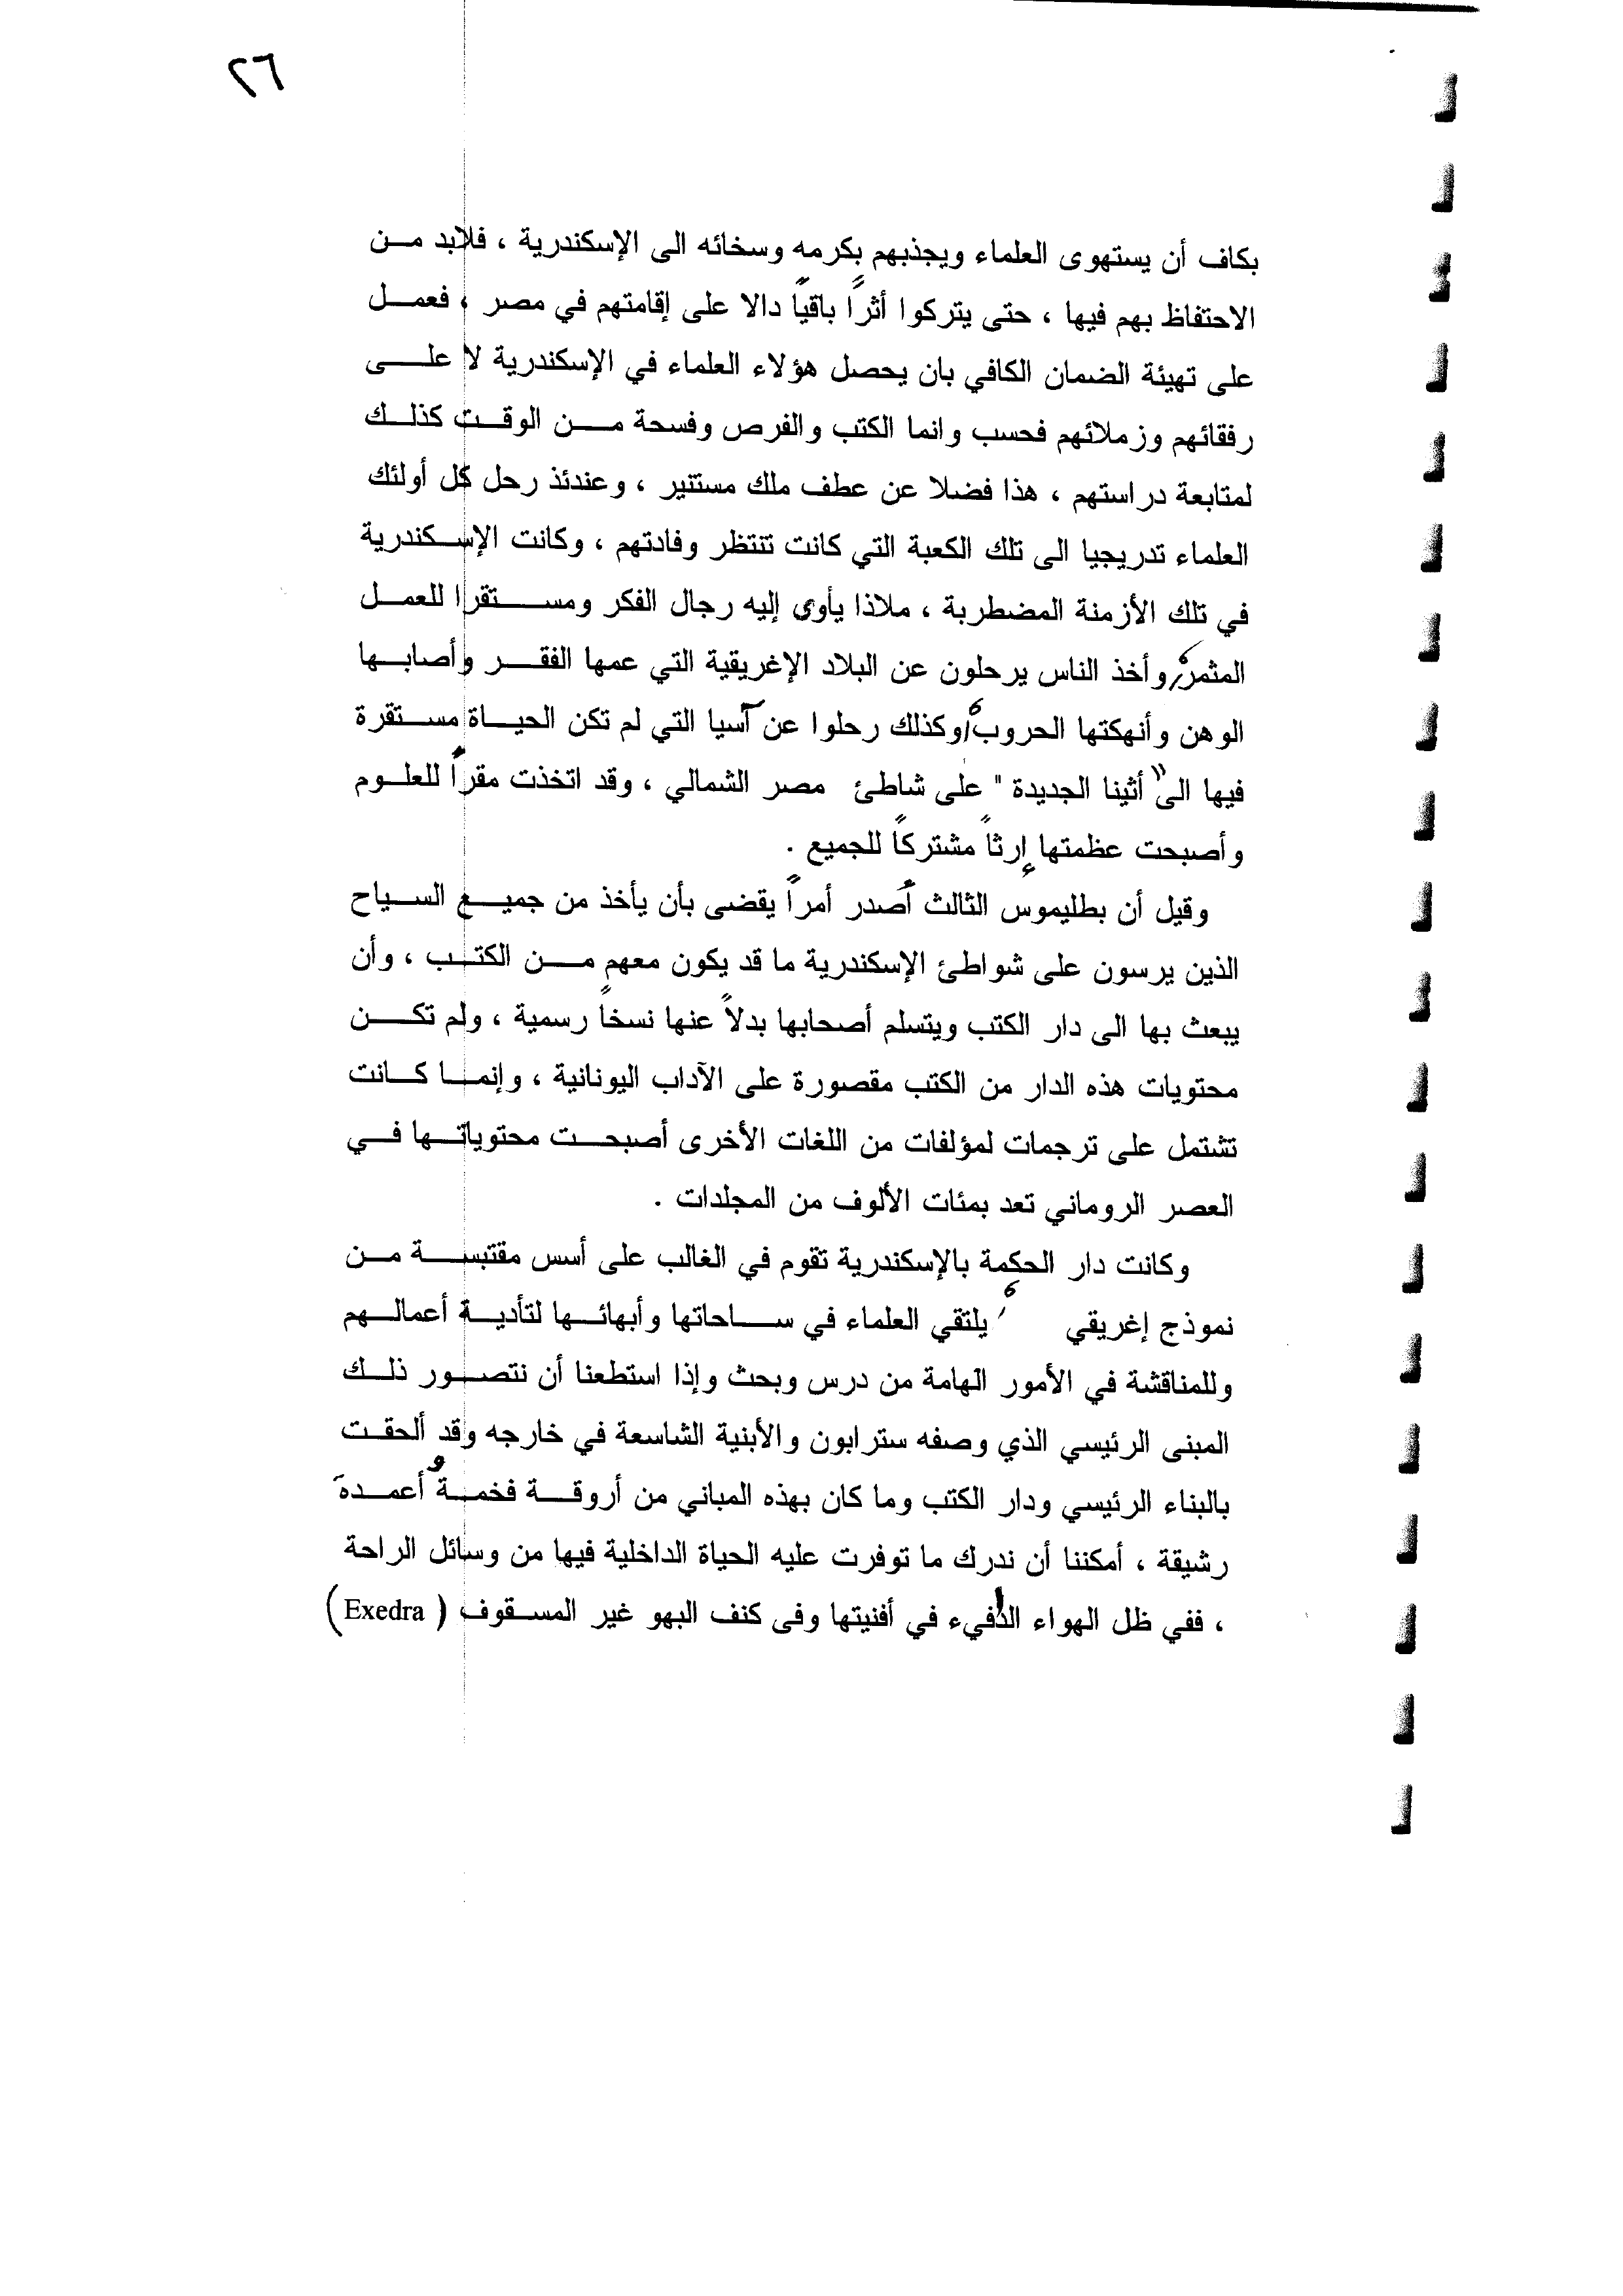 ٢٦
بكاف أن يستهوى العلماء ويجذبهم بكرمه وسخائه الى الإسكندرية ، فلابد من
الاحتفاظ بهم فيها ، حتى يتركوا أثراً باقياً دالا على إقامتهم في مصر ، فعمل
على تهيئة الضمان الكافي بان يحصل هؤلاء العلماء في الإسكندرية لا على
رفقائهم وزملائهم فحسب وانما الكتب والفرص وفسحة من الوقت كذلك
لمتابعة دراستهم ، هذا فضلا عن عطف ملك مستنير ، وعندئذ رحل كل أولئك
العلماء تدريجيا الى تلك الكعبة التي كانت تنتظر وفادتهم ، وكانت الإسكندرية
في تلك الأزمنة المضطربة ، ملاذا يأوى إليه رجال الفكر ومستقرا للعمل
المثمر، وأخذ الناس يرحلون عن البلاد الإغريقية التي عمها الفقر وأصابها
الوهن وأنهكتها الحروب، وكذلك رحلوا عن آسيا التي لم تكن الحياة مستقرة
فيها الى " أثينا الجديدة " على شاطئ مصر الشمالي ، وقد اتخذت مقراً للعلوم
وأصبحت عظمتها إرثاً مشتركاً للجميع .
وقيل أن بطليموس الثالث أصدر أمراً يقضى بأن يأخذ من جميع السياح
الذين يرسون على شواطئ الإسكندرية ما قد يكون معهم من الكتب ، وأن
يبعث بها الى دار الكتب ويتسلم أصحابها بدلاً عنها نسخاً رسمية ، ولم تكن
محتويات هذه الدار من الكتب مقصورة على الآداب اليونانية ، وإنما كانت
تشتمل على ترجمات لمؤلفات من اللغات الأخرى أصبحت محتوياتها في
العصر الروماني تعد بمئات الألوف من المجلدات .
وكانت دار الحكمة بالإسكندرية تقوم في الغالب على أسس مقتبسة من
نموذج إغريقي ، يلتقي العلماء في ساحاتها وأبهائها لتأدية أعمالهم
وللمناقشة في الأمور الهامة من درس وبحث وإذا استطعنا أن نتصور ذلك
المبنى الرئيسي الذي وصفه سترابون والأبنية الشاسعة في خارجه وقد ألحقت
بالبناء الرئيسي ودار الكتب وما كان بهذه المباني من أروقة فخمة و أعمدة
رشيقة ، أمكننا أن ندرك ما توفرت عليه الحياة الداخلية فيها من وسائل الراحة
، ففي ظل الهواء الدافيء في أفنيتها وفى كنف البهو غير المسقوف ( Exedra )